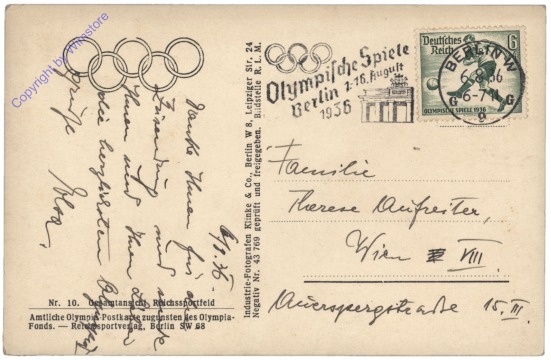 Copyright by Wimstore
Danke Ihnen für die
Zusendung und sende
Ihnen und Ihren Lieben
die herzlichsten
Grüße
6/8.36.
Nr. 10. Gesamtansicht Reichssportfeld
Amtliche Olympia-Postkarte zugunsten des Olympia-
Fonds. — Reichssportverlag, Berlin SW 68
Industrie-Fotografen Klinke & Co., Berlin W 8, Leipziger Str. 24
Negativ Nr. 43 769 geprüft und freigegeben. Bildstelle R. L. M.
Olympische Spiele
Berlin 1.-16. August
1936
Deutsches Reich 6
OLYMPISCHE SPIELE 1936
BERLIN W
6.8.36
6-7
G G
g
Familie
Therese Aufreiter,
Wien VIII
Auerspergstrasse 15. III.